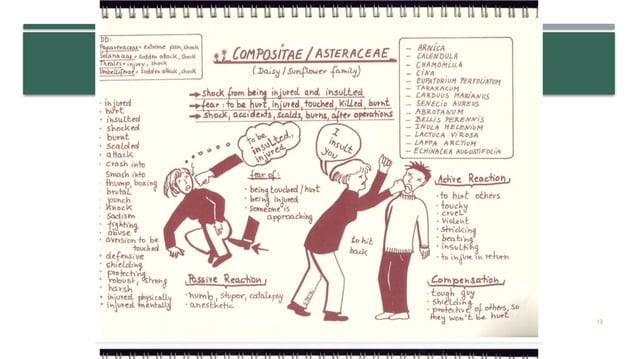 DD:
Papaveraceae = extreme pain, shock
Solanaceae = sudden attack, shock
Theales = injury, shock
Umbelliferae = sudden attack, shock
COMPOSITAE / ASTERACEAE
(Daisy / Sunflower family)
→ shock from being injured and insulted
→ fear: to be hurt, injured, touched, killed, burnt
→ shock, accidents, scalds, burns, after operations
– ARNICA
– CALENDULA
– CHAMOMILLA
– CINA
– EUPATORIUM PERFOLIATUM
– TARAXACUM
– CARDUUS MARIANUS
– SENECIO AUREUS
– ABROTANUM
– BELLIS PERENNIS
– INULA HELENIUM
– LACTUCA VIROSA
– LAPPA ARCTIUM
– ECHINACEA AUGUSTIFOLIA
· injured
· hurt
· insulted
· shocked
· burnt
· scalded
· attack
· crash into
smash into
thump, boxing
brutal
punch
knock
· sadism
· fighting
· abuse
· aversion to be
touched
· defensive
· shielding
· protecting
· robust, strong
· harsh
· injured physically
· injured mentally
to be
insulted,
injured
fear of:
· being touched / hurt
· being injured
· someone is
approaching
I
insult
you
to hit
back
Passive Reaction
· numb, stupor, catalepsy
· anesthetic
Active Reaction
· to hurt others
· touchy
· cruel
· violent
· stricking
· beating
· insulting
· to injure in return
Compensation
· tough guy
· shielding
· protective of others, so
they won't be hurt
12